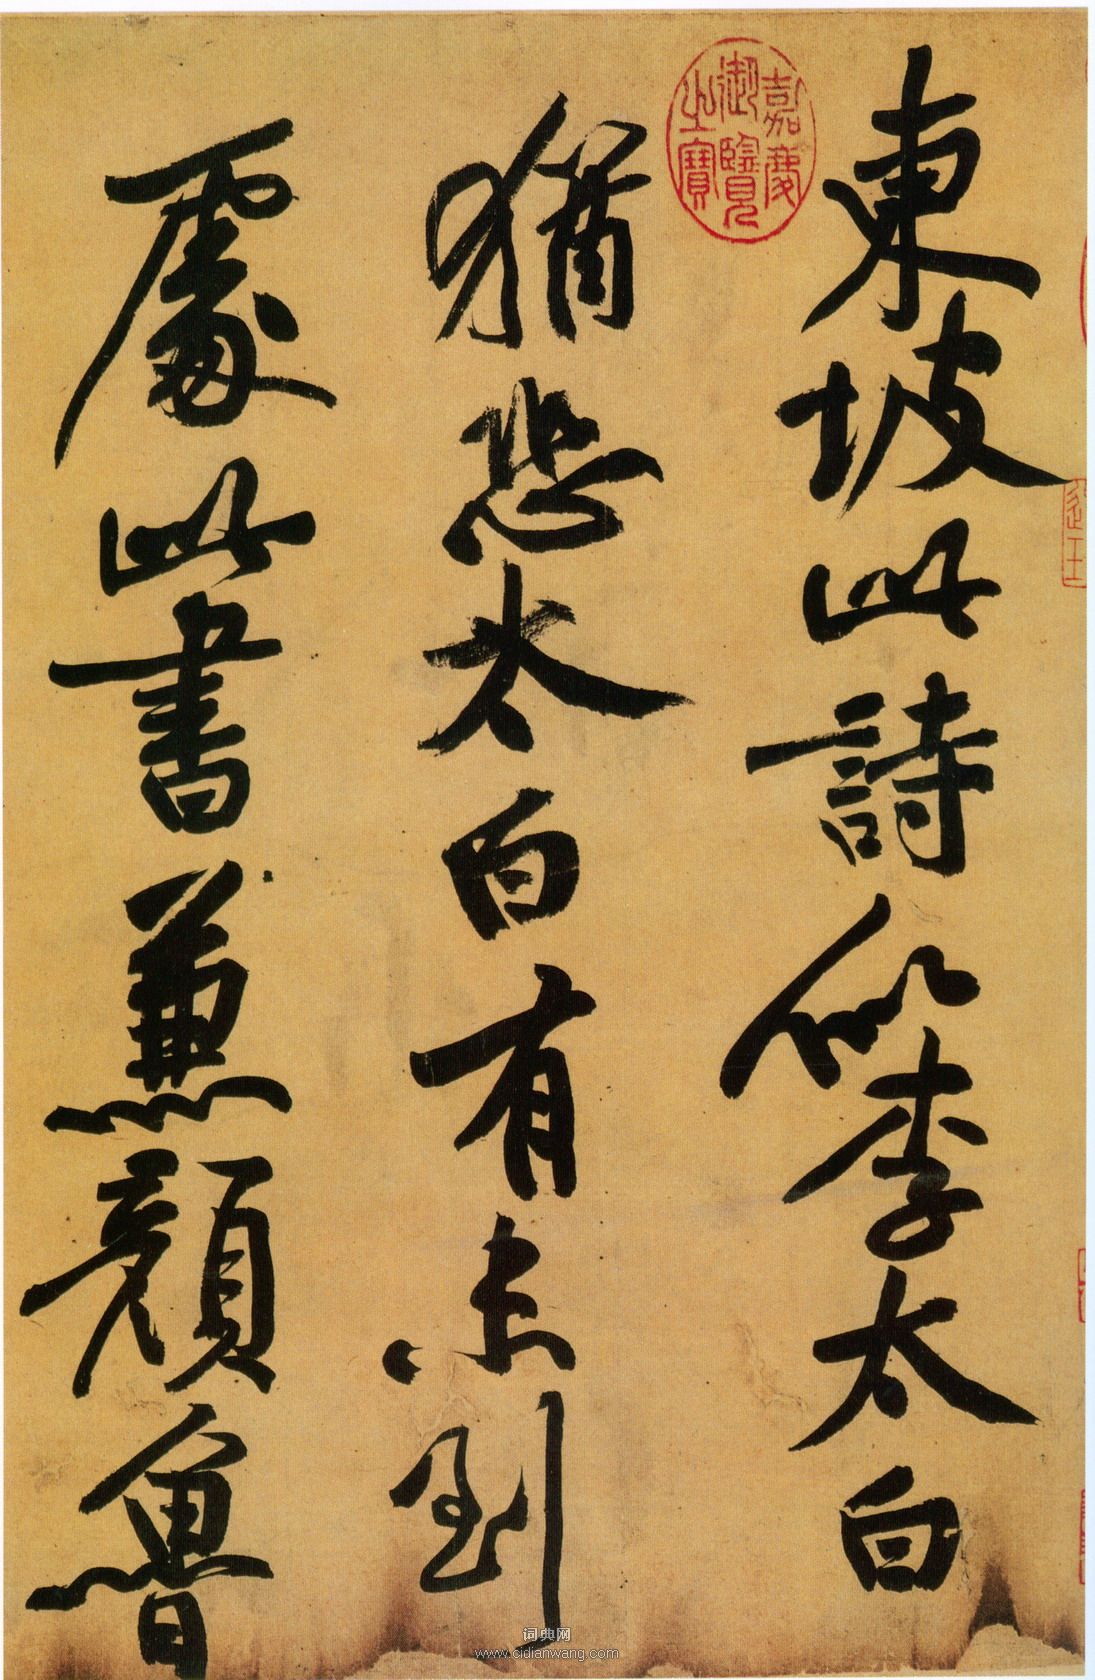 東坡此詩似李太白
猶恐太白有未到
處此書兼顏魯
嘉慶
御覽
之寶
词典网
www.cidianwang.com